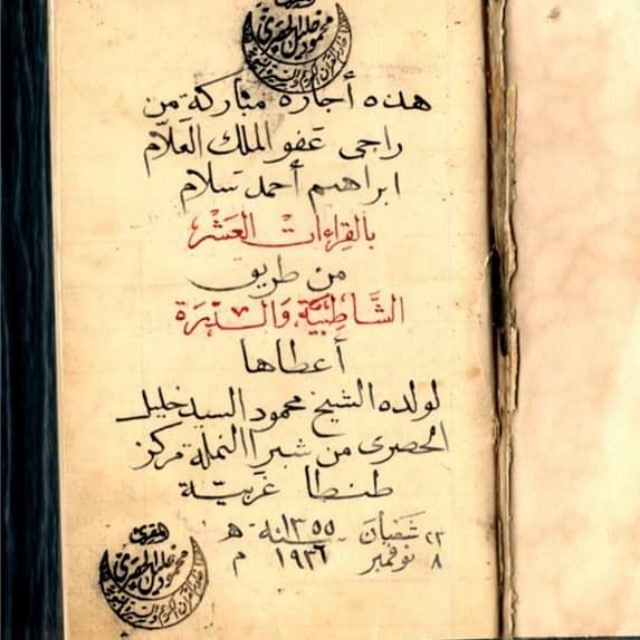 المقرئ
محمود خليل الحصري
هذه أجازة مباركة من
راجى عفو الملك العلّام
ابراهيم أحمد سلام
بالقراءات العَشْر
من طريق
الشَّاطِبيَّة وَالدُّرَة
أعطاها
لولده الشيخ محمود السيد خليل
الحصرى من شبرا النملة مركز
طنطا غربيّة
٢٣ شَعْبَان سنة ١٣٥٥ هـ
٨ نوفمبر ١٩٣٦ م
المقرئ
محمود خليل الحصري